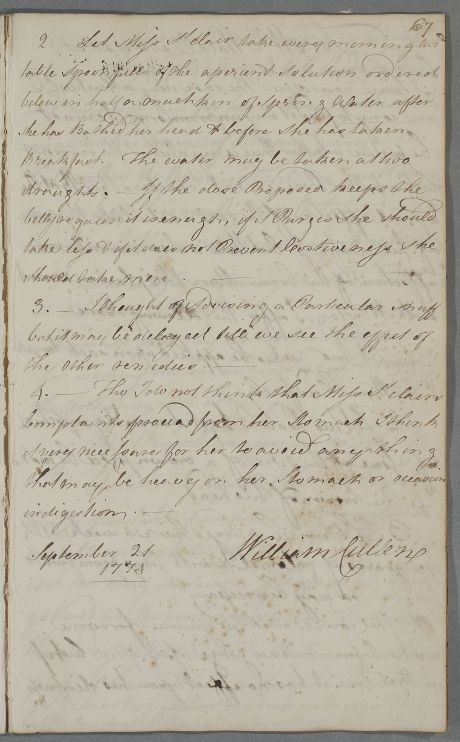 67
2. - Let Miss St clair take every morning two
table spoonfulls of the aperient Solution ordered
below in half a mutchkin of Spring Water after
she has Bathed her head & before she has taken
Breakfast. The water may be taken at two
draughts. - If the dose Proposed keeps the
belly regular it is enough, if it Purges she should
take less & if it does not Prevent Costiveness she
should take more.
3. - I thought of advising a Particular snuff
but it may be delayed till we see the effect of
the other remedies.
4. - Tho' I do not think that Miss St clairs
Complaints proceed from her Stomach I think
it very necessary for her to avoid anything
that may be heavy on her Stomach or occasion
indigestion. -
September 21
William Cullen